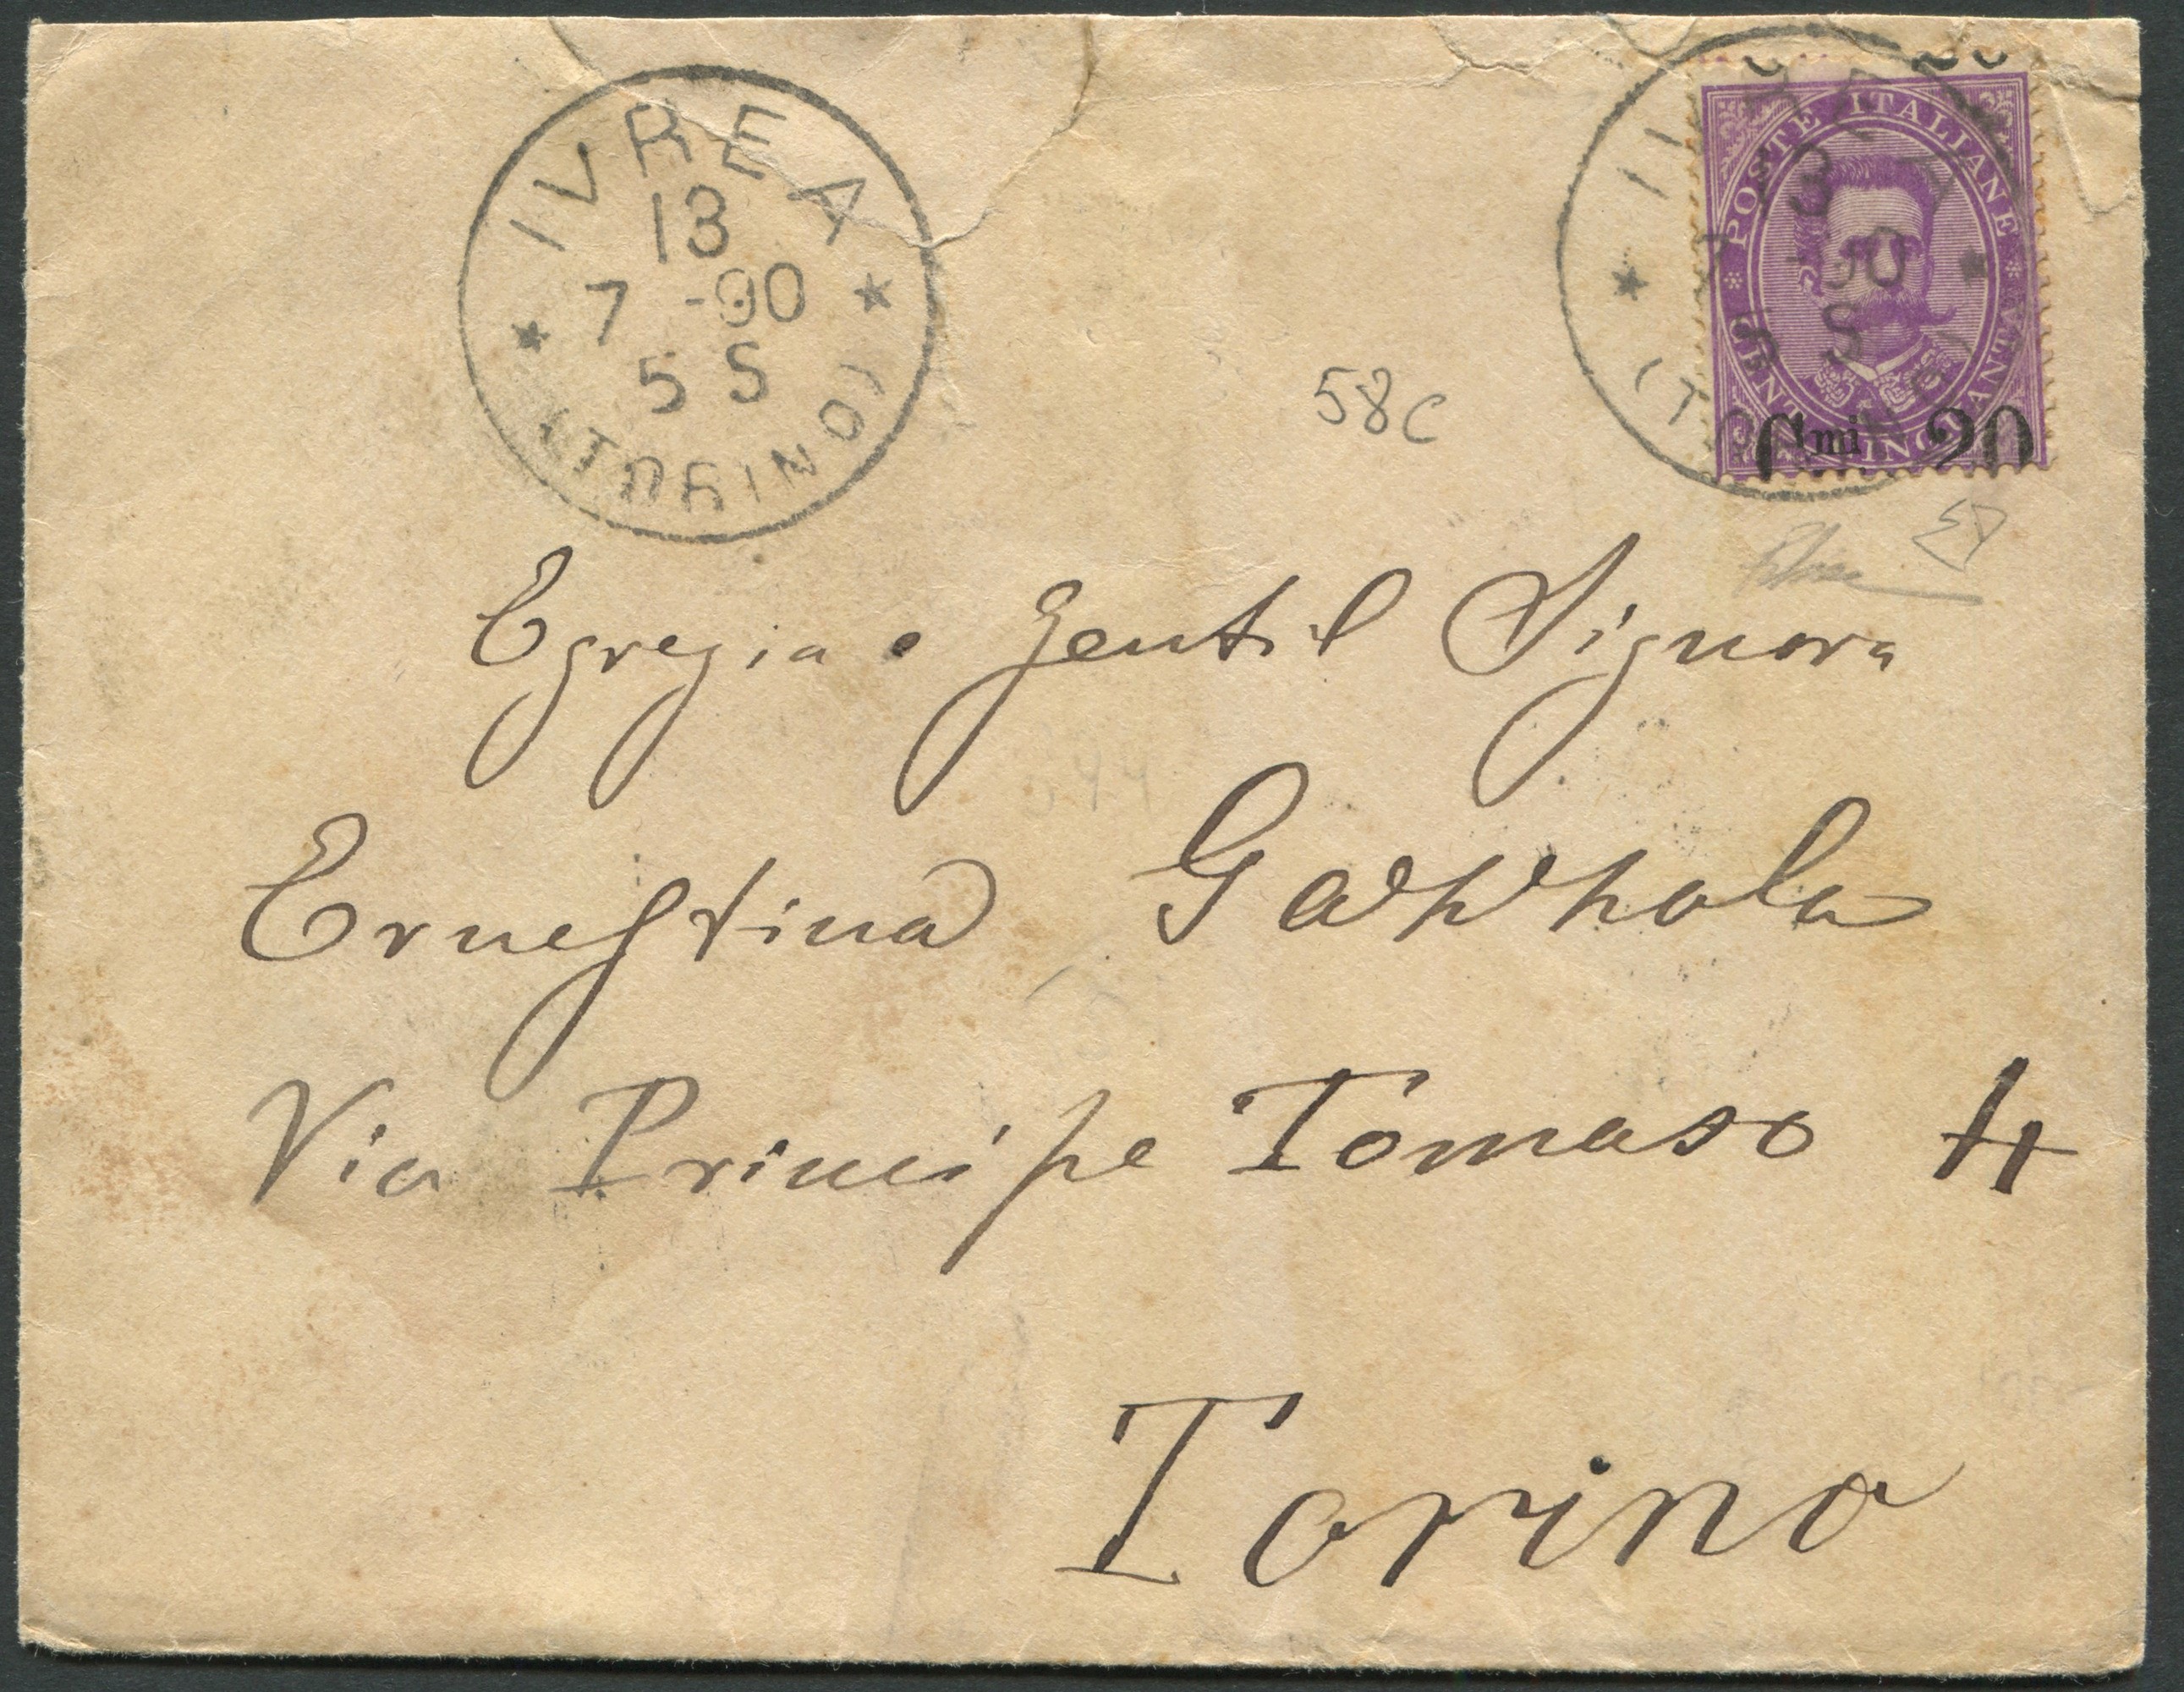 IVREA
13
7 -90
5 S
(TORINO)
POSTE ITALIANE
CINQUANTA
Cmi 20
58c
Egregia e gentil Signora
Ernestina
Via Principe Tomaso 4
Torino